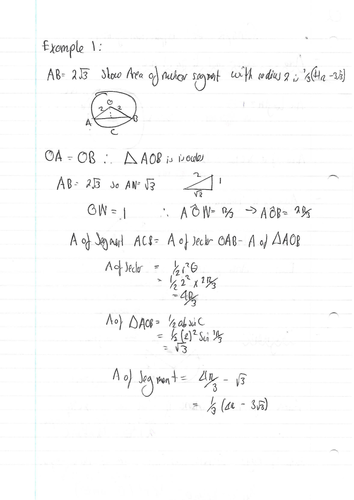 Example 1:
AB = 2√3 Show Area of minor segment with radius 2 is 1/3(4π - 3√3)
O
2 2
A B
C
OA = OB ∴ △AOB is isosceles
AB = 2√3 so AN = √3
2 1
√3
ON = 1 ∴ AÔN = π/3 → AÔB = 2π/3
A of Segment ACB = A of sector OAB - A of △AOB
A of sector = 1/2 r²θ
= 1/2 2² × 2π/3
= 4π/3
A of △AOB = 1/2 ab sin C
= 1/2 (2)² Sin 2π/3
= √3
A of Segment = 4π/3 - √3
= 1/3 (4π - 3√3)